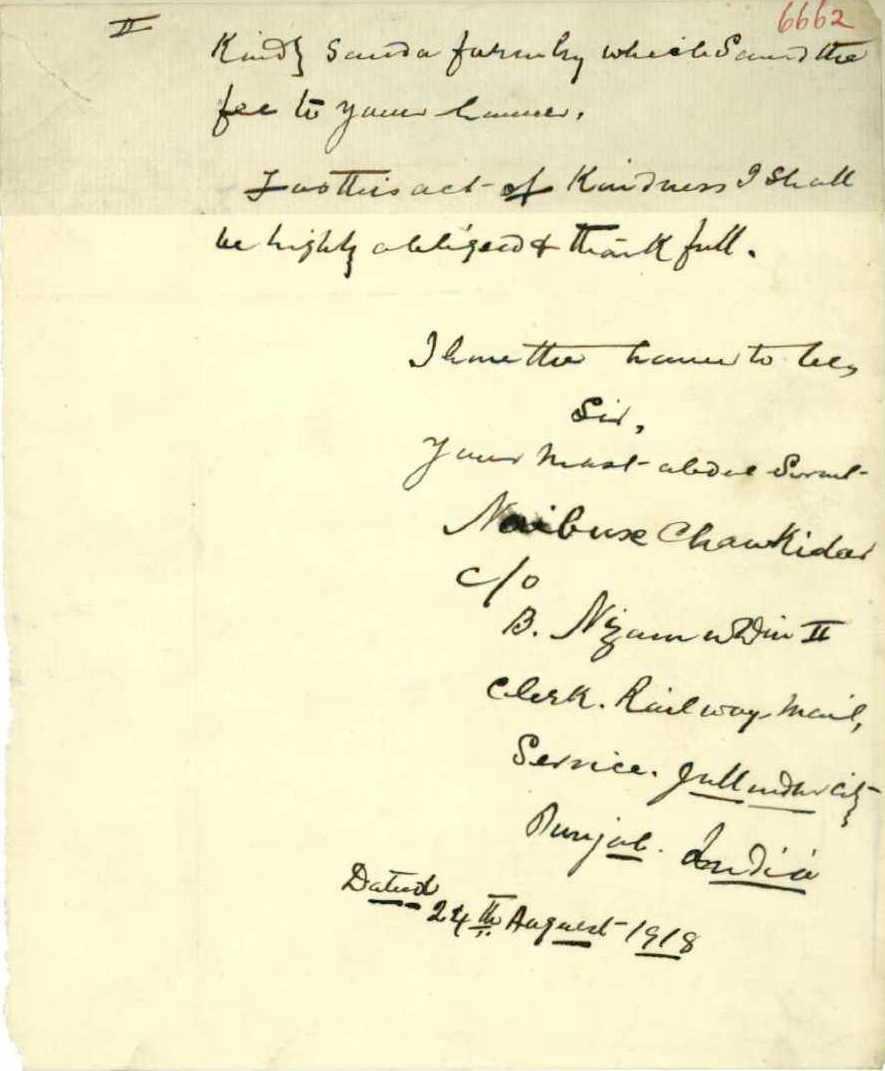 6662
II
Kindly send a form by which I send the
fee to your honour.
For this act of Kindness I shall
be highly obliged & thankfull.
I have the honour to be,
Sir,
Your most obdet Servt
Naibuxe Chawkidar
C/o
B. Nizam u Din II
Clerk. Railway Mail,
Service. Jullundur City
Punjab. India
Dated
24th August 1918